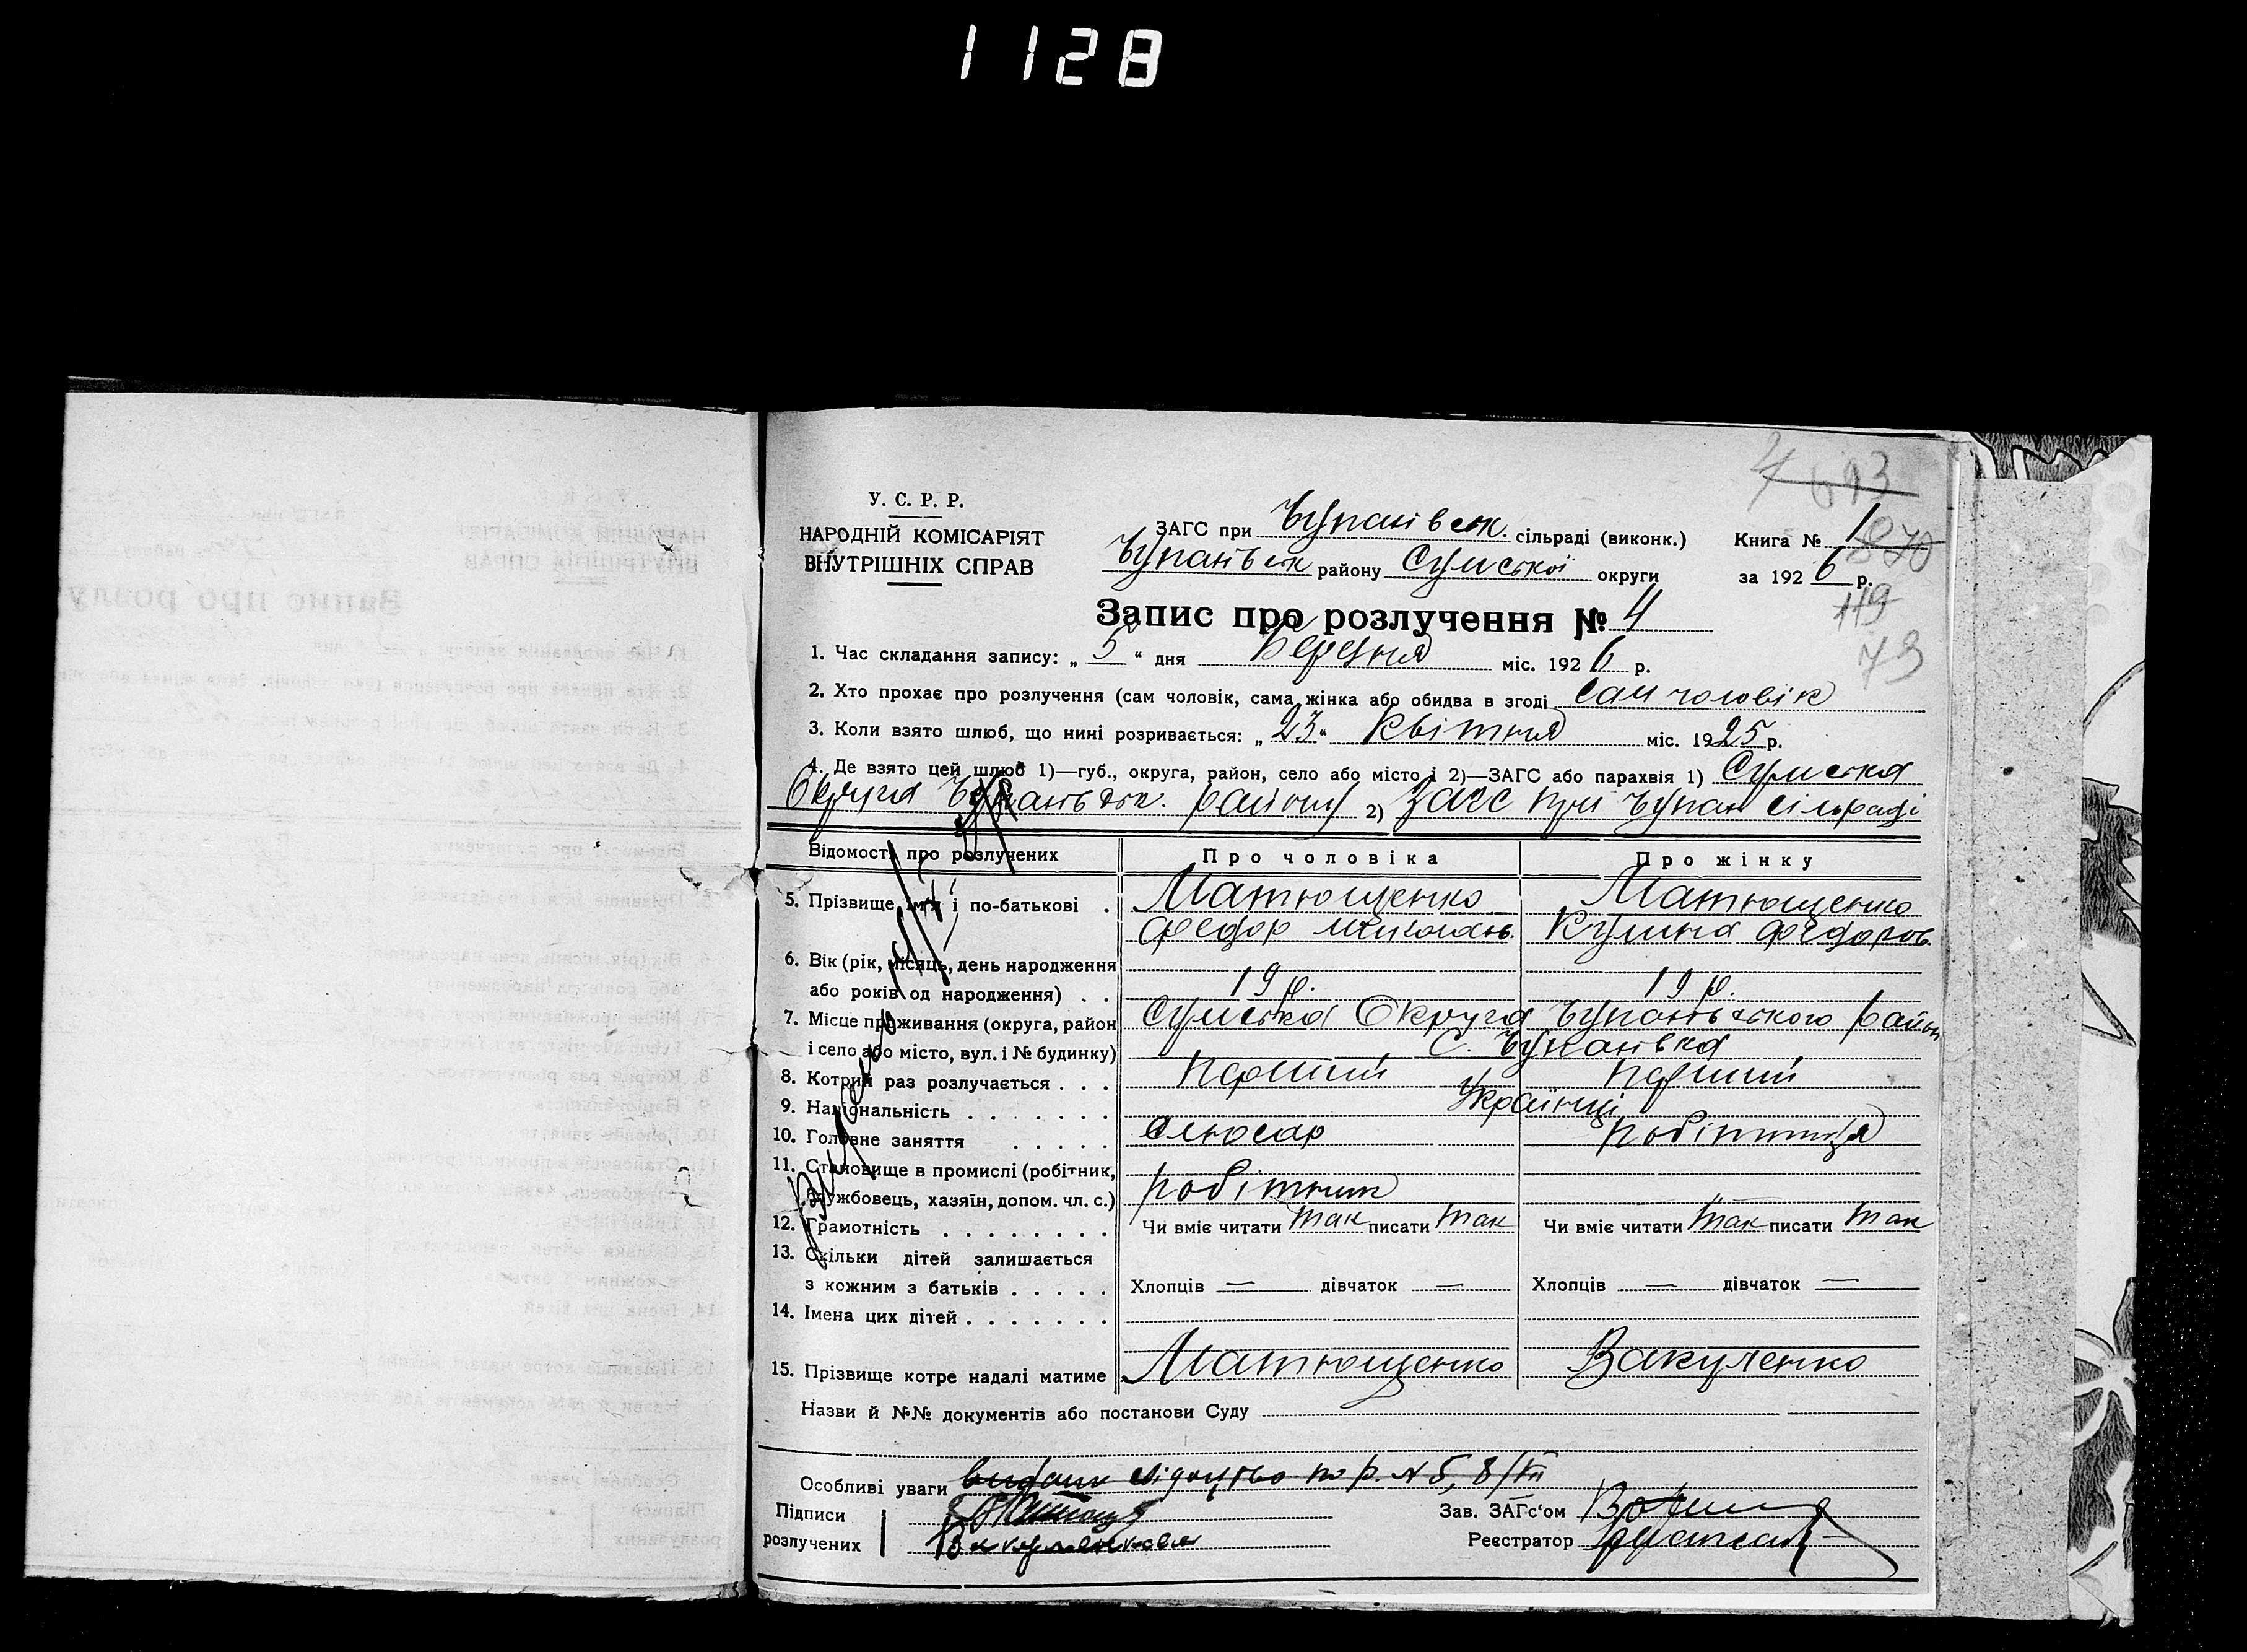 1128
4 693
У. С. Р. Р.
НАРОДНІЙ КОМІСАРІЯТ
ВНУТРІШНІХ СПРАВ
ЗАГС при Чупахівськ. сільраді (виконк.)
Чупахівськ району Сумської округи
Книга № 1
870
за 1926 р.
119
73
Запис про розлучення № 4
1. Час складання запису: „ 5 “ дня Березня міс. 1926 р.
2. Хто прохає про розлучення (сам чоловік, сама жінка або обидва в згоді сам чоловік
3. Коли взято шлюб, що нині розривається: „ 23 “ Квітня міс. 1925 р.
4. Де взято цей шлюб 1)—губ., округа, район, село або місто і 2)—ЗАГС або парахвія 1) Сумська
Округа Чупахівськ. району 2) ЗАГС при Чупах сільраді
Відомості про розлучених Про чоловіка Про жінку
5. Прізвище ім'я і по-батькові . Матющенко Матющенко
Федор Миколаїв. Кулина Федоров.
6. Вік (рік, місяць, день народження
або років од народження) . . 19 р. 19 р.
7. Місце проживання (округа, район Сумська Округа Чупахівського район
і село або місто, вул. і № будинку) с. Чупахівка
8. Котрий раз розлучається . . . Перший Перший
9. Національність . . . . . . . Українці
10. Головне заняття . . . . . Слюсар робітниця
11. Становище в промислі (робітник,
службовець, хазяїн, допом. чл. с.) робітник
12. Грамотність . . . . . . . . Чи вміє читати так писати так Чи вміє читати так писати так
13. Скільки дітей залишається
з кожним з батьків . . . . . Хлопців — дівчаток — Хлопців — дівчаток —
14. Імена цих дітей . . . . . . .
15. Прізвище котре надалі матиме Матющенко Вакуленко
Назви й №№ документів або постанови Суду
Особливі уваги видано свідоцтво по р. № 5, 8/VII
Підписи
розлучених Вакуленкова
Зав. ЗАГс‘ом
Реєстратор